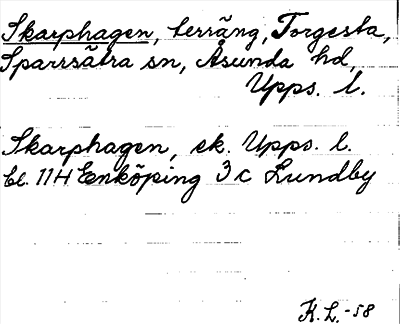 Skarphagen, terräng, Torgesta,
Sparrsätra sn, Åsunda hd,
Upps. l.
Skarphagen, ek. Upps. l.
bl. 11H Enköping 3c Lundby
K.L.-58